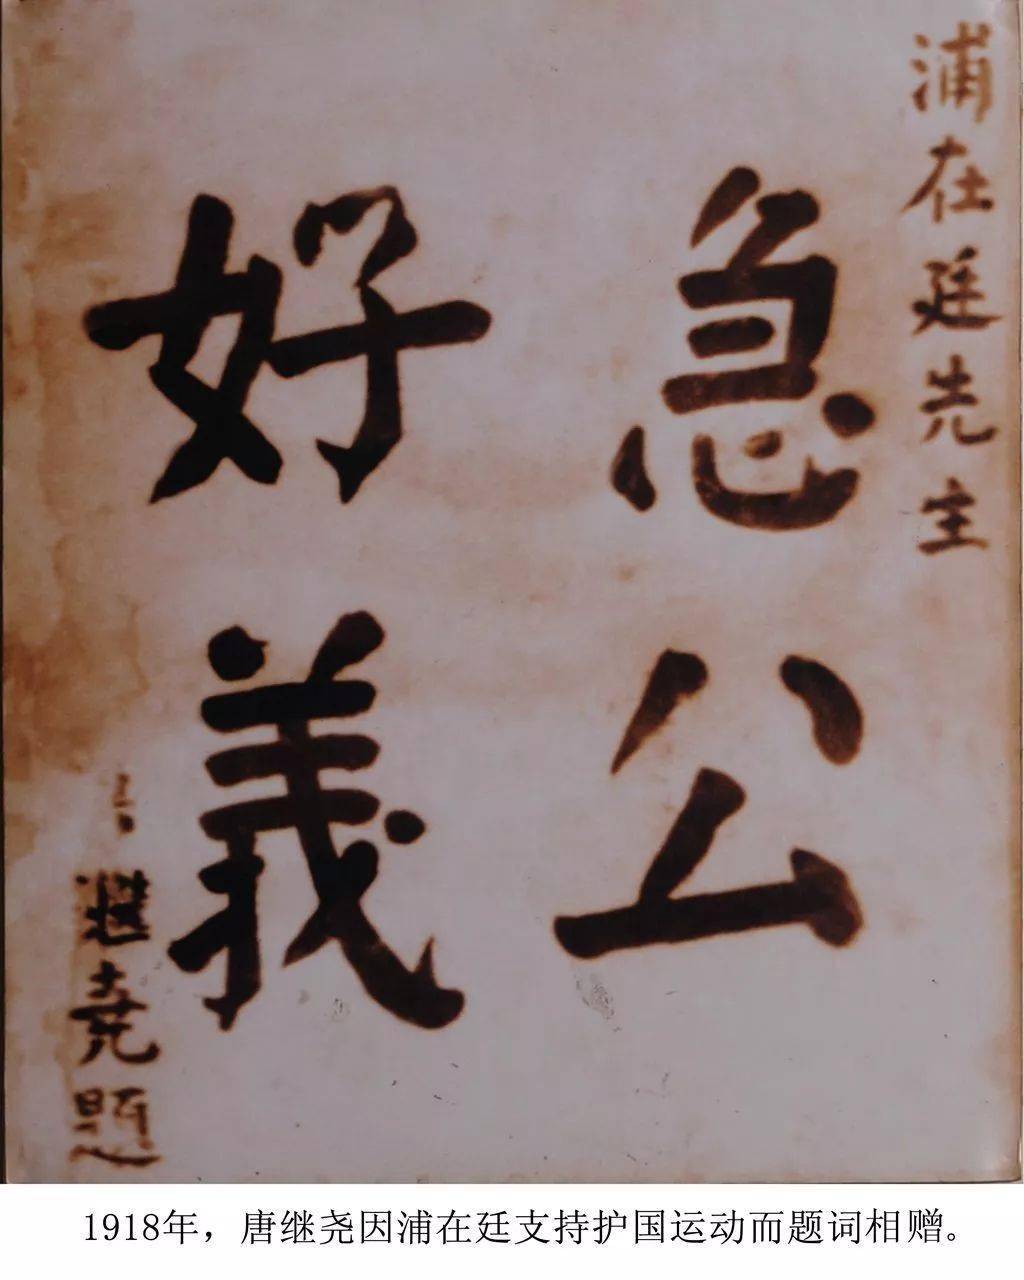 浦在廷先生
急公
好義
繼堯題
1918年，唐继尧因浦在廷支持护国运动而题词相赠。